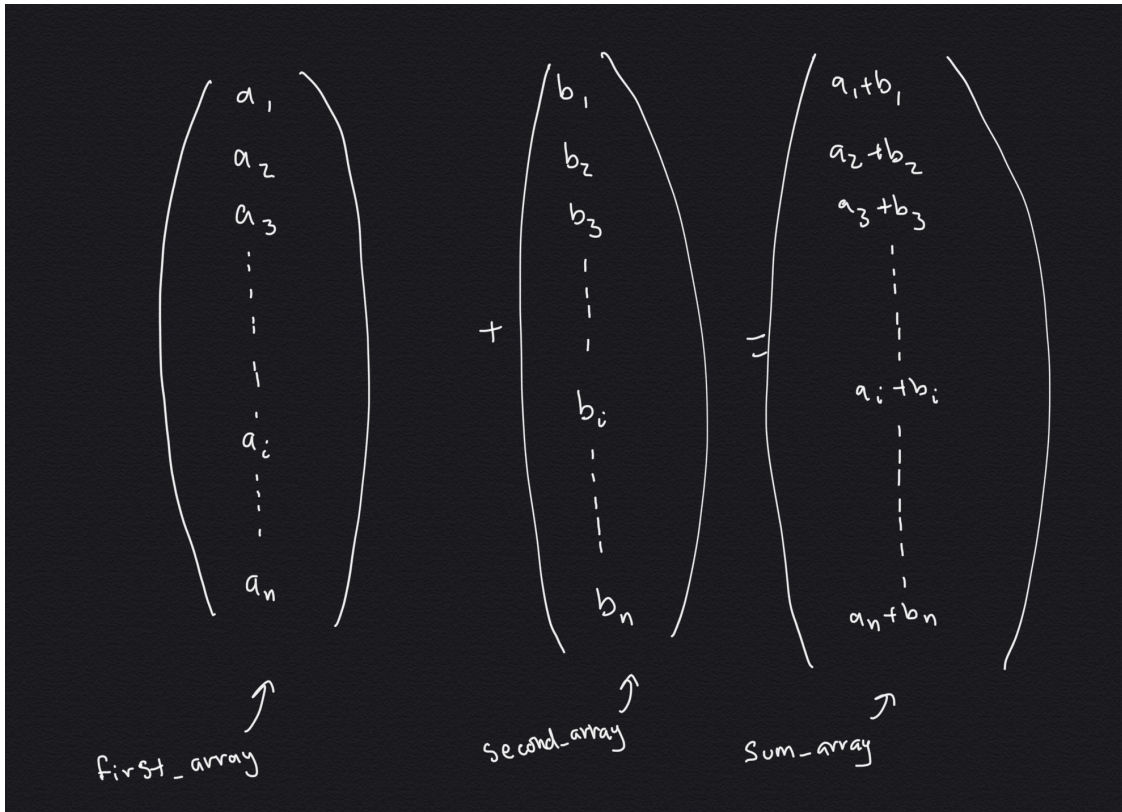 a₁
a₂
a₃
aᵢ
aₙ
+
b₁
b₂
b₃
bᵢ
bₙ
=
a₁+b₁
a₂+b₂
a₃+b₃
aᵢ+bᵢ
aₙ+bₙ
first_array
second_array
sum_array